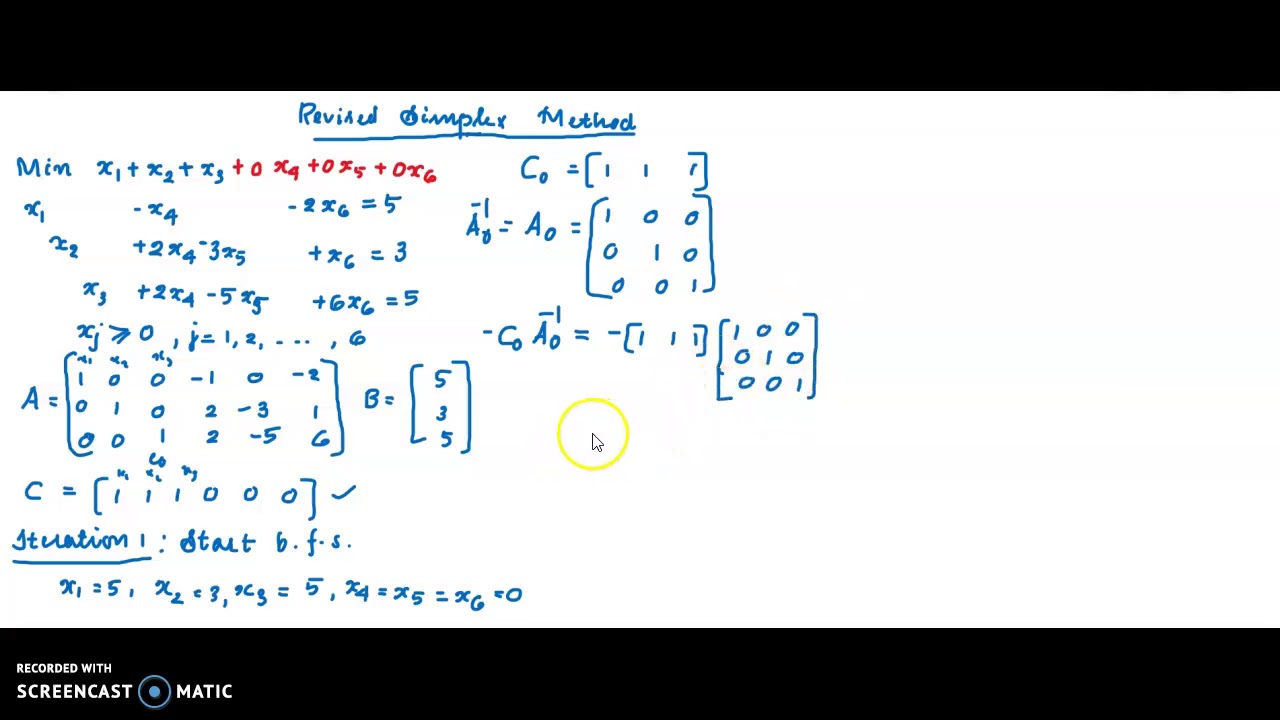 Revised Simplex Method
Min x₁ + x₂ + x₃ + 0 x₄ + 0x₅ + 0x₆
x₁ - x₄ - 2x₆ = 5
x₂ + 2x₄ - 3x₅ + x₆ = 3
x₃ + 2x₄ - 5x₅ + 6x₆ = 5
xⱼ ≥ 0 , j = 1, 2, ... , 6
x₁ x₂ x₃
A = [1 0 0 -1 0 -2
0 1 0 2 -3 1
0 0 1 2 -5 6]
B = [5
3
5]
C₀
x₁ x₂ x₃
C = [1 1 1 0 0 0] ✓
Iteration 1 : Start b.f.s.
x₁ = 5, x₂ = 3, x₃ = 5, x₄ = x₅ = x₆ = 0
C₀ = [1 1 1]
A₀⁻¹ = A₀ = [1 0 0
0 1 0
0 0 1]
-C₀ A₀⁻¹ = -[1 1 1] [1 0 0
0 1 0
0 0 1]
RECORDED WITH
SCREENCAST MATIC